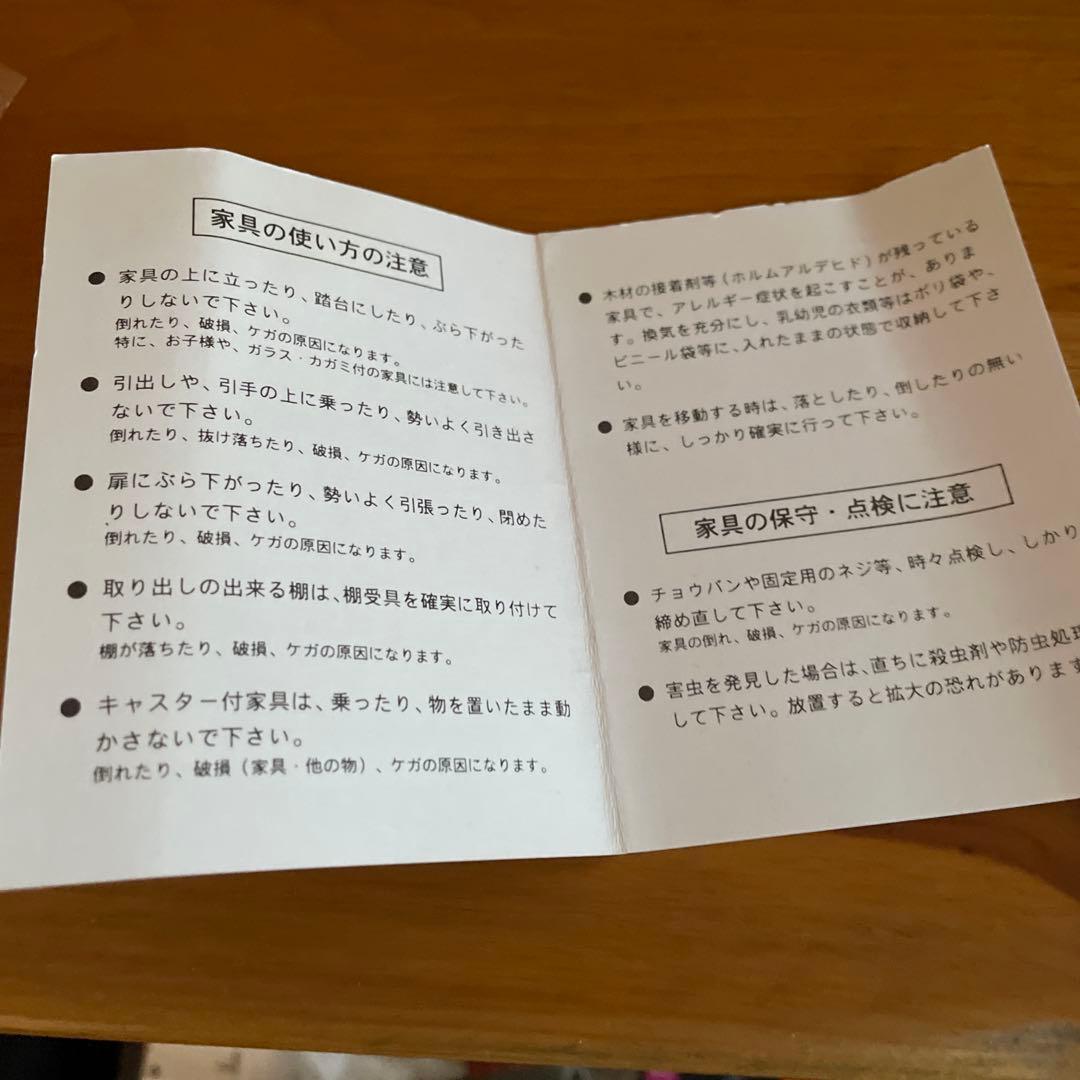 家具の使い方の注意
● 家具の上に立ったり、踏台にしたり、ぶら下がった
りしないで下さい。
倒れたり、破損、ケガの原因になります。
特に、お子様や、ガラス・カガミ付の家具には注意して下さい。
● 引出しや、引手の上に乗ったり、勢いよく引き出さ
ないで下さい。
倒れたり、抜け落ちたり、破損、ケガの原因になります。
● 扉にぶら下がったり、勢いよく引張ったり、閉めた
りしないで下さい。
倒れたり、破損、ケガの原因になります。
● 取り出しの出来る棚は、棚受具を確実に取り付けて
下さい。
棚が落ちたり、破損、ケガの原因になります。
● キャスター付家具は、乗ったり、物を置いたまま動
かさないで下さい。
倒れたり、破損（家具・他の物）、ケガの原因になります。
● 木材の接着剤等（ホルムアルデヒド）が残っている
家具で、アレルギー症状を起こすことが、ありま
す。換気を充分にし、乳幼児の衣類等はポリ袋や、
ビニール袋等に、入れたままの状態で収納して下さ
い。
● 家具を移動する時は、落としたり、倒したりの無い
様に、しっかり確実に行って下さい。
家具の保守・点検に注意
● チョウバンや固定用のネジ等、時々点検し、しかり
締め直して下さい。
家具の倒れ、破損、ケガの原因になります。
● 害虫を発見した場合は、直ちに殺虫剤や防虫処理
して下さい。放置すると拡大の恐れがあります